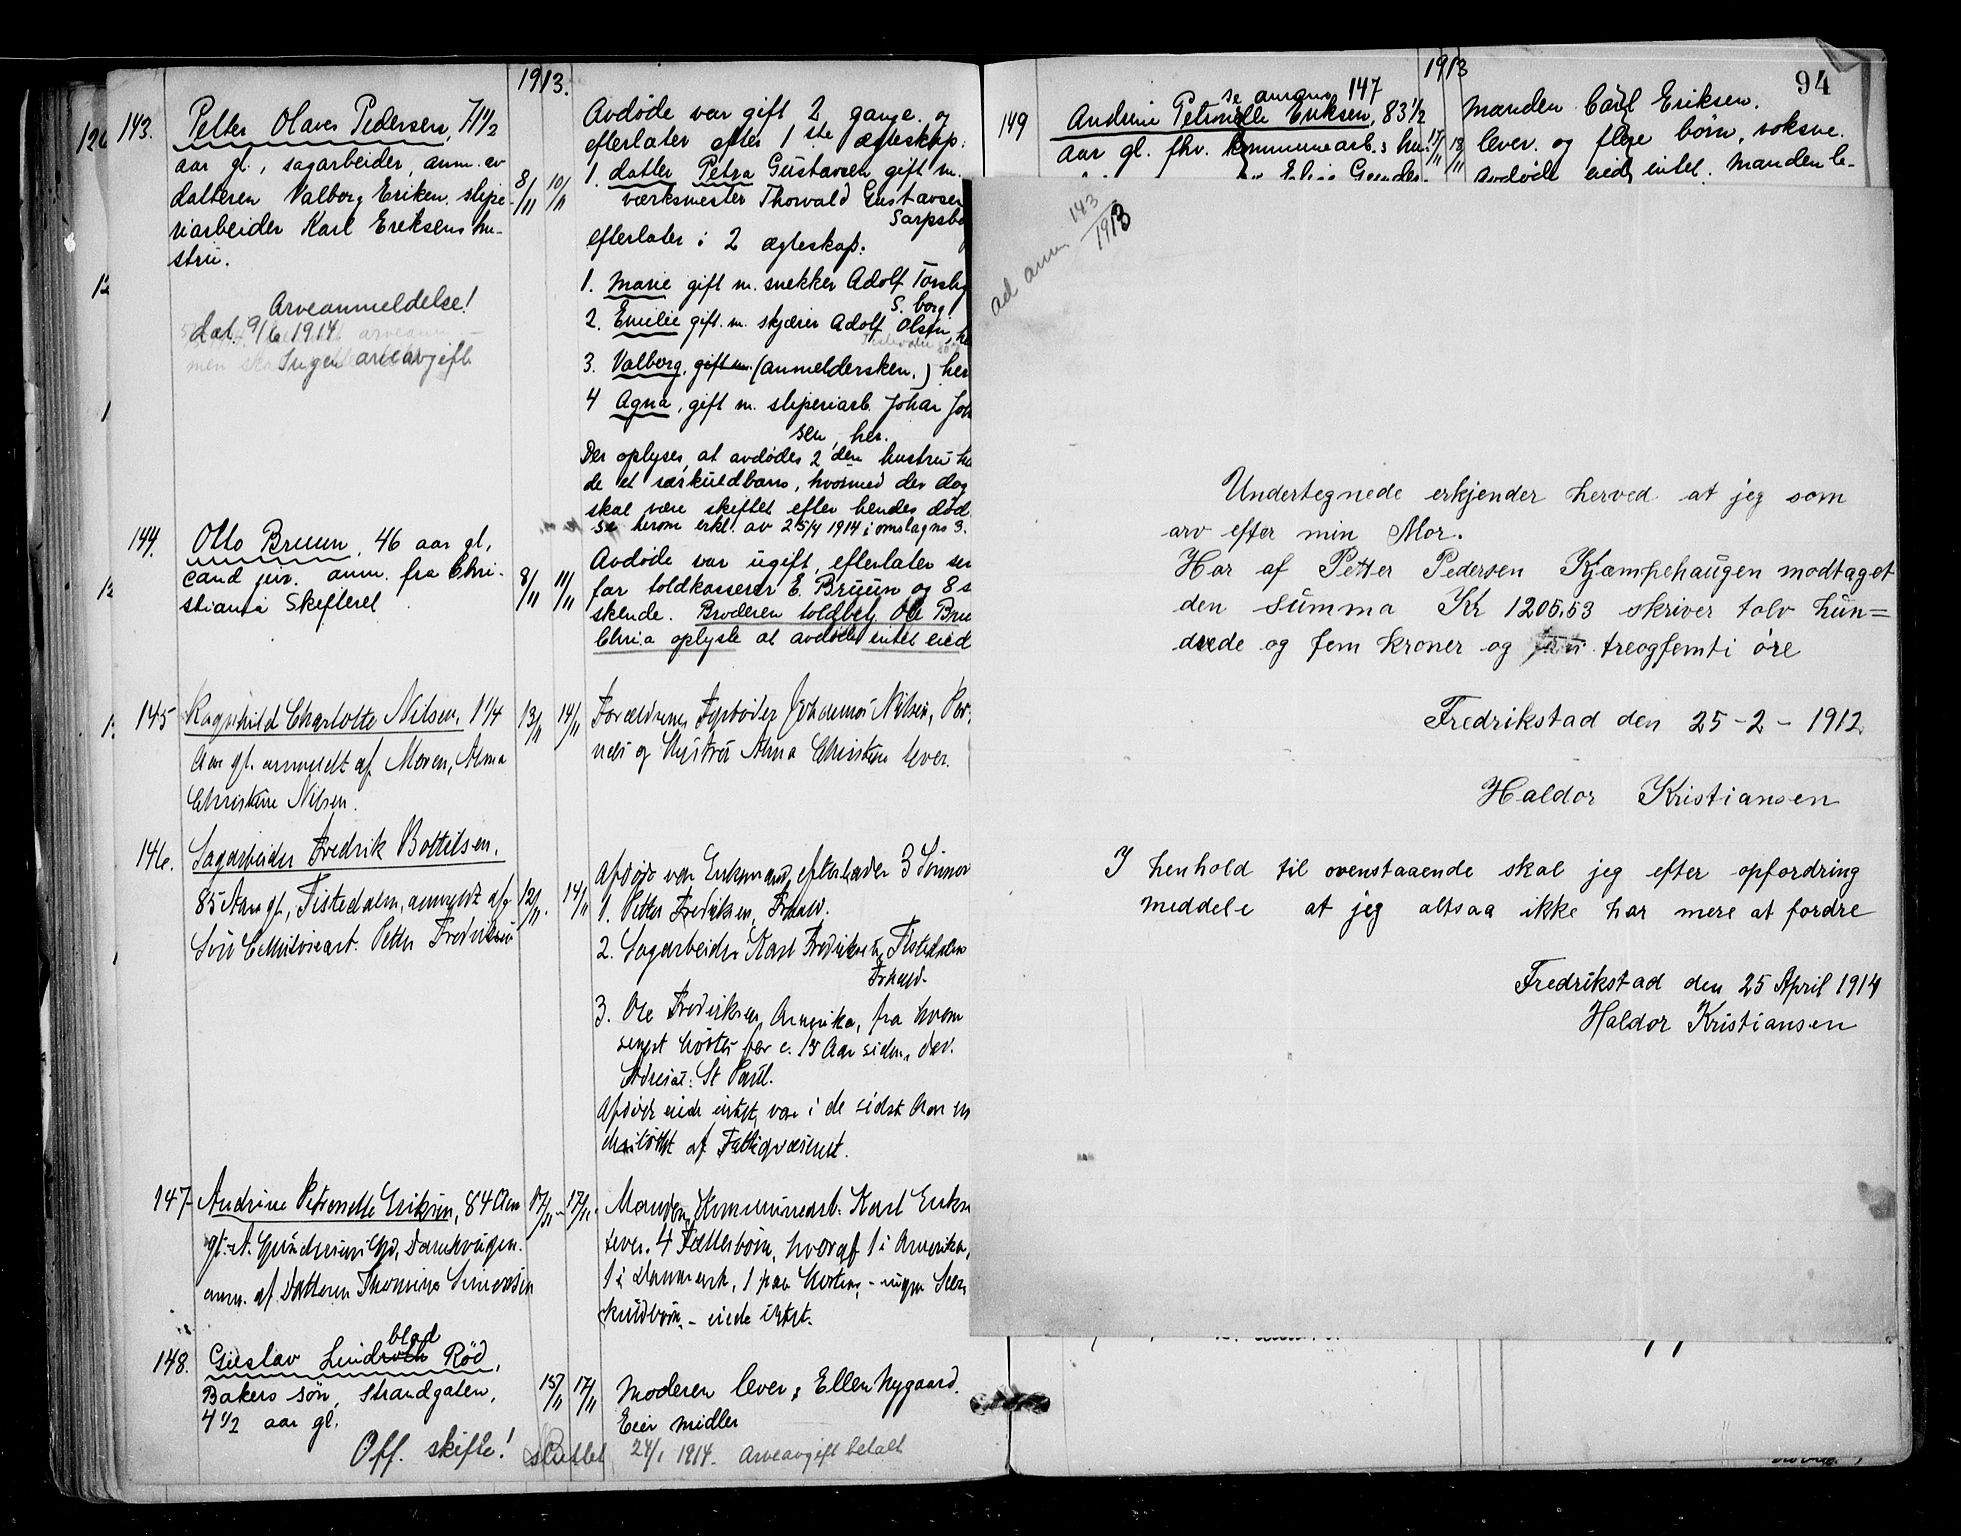 1913.
143. Petter Olaves Pedersen, 71 1/2
aar gl., sagarbeider, anm. av
datteren Valborg Eriken, slipe-
riarbeider Karl Eriksens hu-
stru.
8/11 10/11
Arveanmeldelse!
dat. 9/6 1914
Ingen arveavgift
Avdøde var gift 2 gange. og
efterlater efter 1ste ægteskap:
1. datter Petra Gustavsen gift m.
værksmester Thorvald Gustavsen
Sarpsbo
efterlater i 2 ægteskap.
1. Marie gift m. snekker Adolf Torsby
S. borg
2. Emilie gift. m. skjærer Adolf Olsen, he
3. Valborg, gift m. (anmeldersken.) her
4 Agna, gift m. sliperiarb. Johan Joh
sen, her.
Der oplyses, at avdødes 2den hustru ha
de et særkuldbarn, hvormed der dog
skal være skiftet efter hendes død
Se herom erkl. av 25/4 1914 i omslag no 3.
144. Otto Bruun, 46 aar gl,
cand jur. anm. fra Chri-
stiania Skifteret.
8/11 11/11
Avdøde var ugift, efterlater
far toldkasserer E. Bruun og 8 s
skende. Broderen toldbetj. Ole Bru
Chr.ia oplyste at avdøde intet eied
145 Ragnhild Charlotte Nilsen, 1 1/4
Aar gl. anmeldt af Moren, Alma
Christine Nilsen.
13/11 14/11
Forældrene, Johannes Nilsen, Por-
næs og Hustru Alma Christine lever.
146. Sagarbeider Fredrik Bottilsen.
85 Aar gl, Tistedalen, anmeldt af
Søn Petter Fredriksen
12/11. 14/11
Afdøde var Enkemand, efterlader 3 Sønner
1. Petter Fredriksen, Frhald.
2. Sagarbeider Karl Fredriksen, Tistedalen
Frhald.
3. Ole Fredriksen, Amerika, fra hvem
senest hørtes for c. 15 Aar siden, dav.
Adresse: St Paul.
Afdøde eiede intet, var i de sidste Aar un
derstøttet af Fattigvæsenet.
147 Andrine Petronelle Eriksen, 84 Aar
gl. A. Gundersens Gd, Damhaugen.
anm. af Datteren Thomine Simonsen
17/11 - 17/11.
Manden, Kommunearb. Karl Eriks
lever. 4 Fællesbørn, hvoraf 1 i Amerika,
1 i Danmark, 1 paa Horten, - ingen Sær
kuldbørn. - eiede intet.
148. Gustav Lindroth Rød,
blad
Bakers søn, Strandgaten,
4 1/2 aar gl.
15/11 17/11
Moderen lever, Ellen Nygaard.
Eier midler
Off. skifte! sluttet 24/1 1914. Arveavgift betalt
1913
94
se anm no 147
149 Andrine Petronelle Eriksen, 83 1/2
aar gl. fhv. kommunearb.s hu.
17/11 18/11
Manden Carl Eriksen.
lever. og flere børn, voksne.
Avdøde eied intet. Manden le-
ad anm 143/1913
Undertegnede erkjender herved at jeg som
arv efter min Mor.
Har af Petter Pedersen Kjæmpehaugen modtaget
den summa Kr 1205,53 skriver tolv hun=
drede og fem kroner og treogfemti øre
Fredrikstad den 25-2-1912
Haldor Kristiansen
I henhold til ovenstaaende skal jeg efter opfordring
meddele at jeg altsaa ikke har mere at fordre
Fredrikstad den 25 April 1914
Haldor Kristiansen